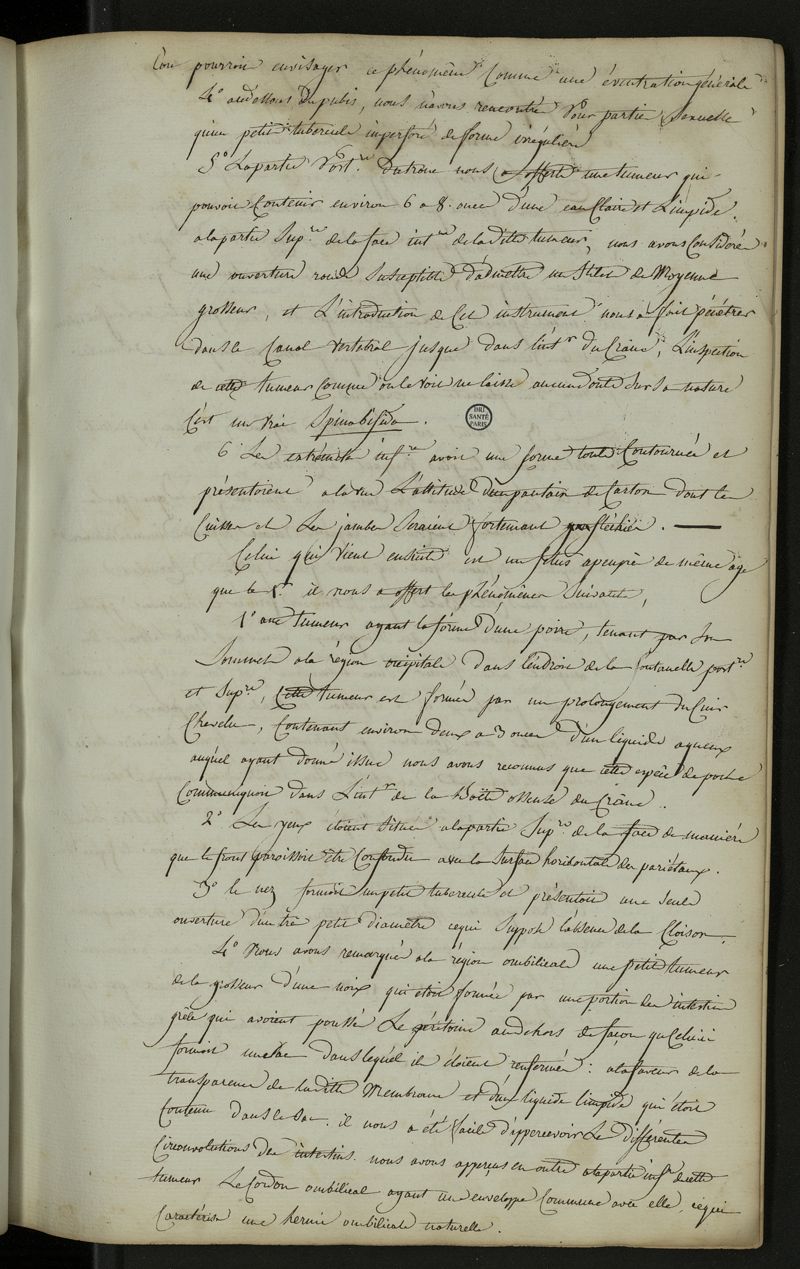 l'on pourroit envisager ce phénomène comme une éventration générale
4° audessous du pubis, nous n'avons rencontré pour partie sexuelle
qu'un petit tubercule imperforé de forme irrégulière
5° La partie post.re du trone nous a offerte une tumeur qui
pouvoit Contenir environ 6 a 8. once d'une eau Claire et Limpide,
a la partie Sup.re de la face int.re de la ditte tumeur, nous avons Considéré
une ouverture ronde Susceptible d'admettre un Stilet de Moyenne
grosseur, et L'introduction de Cet instrument nous a fait pénétrer
dans le Canal vertebral jusque dans l'int.r du Crâne, L'inspection
de cette tumeur Comme on le voit ne laisse aucun doute Sur Sa nature
C'est un vrai Spinabifida.
BIU SANTÉ PARIS
6° Les extrémités inf.res avoit une forme toute Contournée et
présentoient a la vue L'attitude d'un pantain de Carton dont les
Cuisses et Les jambes Seraient fortement fléchies. —
Celui qui vient ensuite est un fœtus a peuprès de même age
que le 1.er il nous a offert les phénomènes Suivants,
1° une tumeur ayant la forme d'une poire, tenant par Son
Sommet a la région occipitale dans l'endroit de la fontanelle post.re
et Sup.re, Cette tumeur est formée par un prolongement du Cuir
Chevelu, Contenant environ deux a 3 onces d'un liquide aqueux
auquel ayant donné issue nous avons reconnus que cette espèce de poche
Communiquoit dans L'int.r de la Boëtte osseuse du Crâne.
2° Les yeux étoient Situés a la partie Sup.re de la face de manière
que le front paroissoit être Confondu avec la Surface horisontale des pariétaux.
3° le nez formoit un petit tubercule et présentoit une seule
ouverture d'un très petit diamètre ce qui Suppose l'absence de la Cloison.
4° Nous avons remarqué a la région ombilicale une petite tumeur
de la grosseur d'une noix qui étoit formée par une portion des intestins
grêle qui avoient poussés Le péritoine audehors de façon que Celui ci
formoit un sac dans lequel ils étoient renfermés : a la faveur de la
transparence de la ditte Membrane et d'un liquide limpide qui étoit
Contenu dans le Sac. il nous a été facile d'appercevoir Les différentes
Circonvolutions des intestins. nous avons apperçus en outre a la partie inf.re de cette
tumeur Le Cordon ombilical ayant une enveloppe Commune avec elle, ce qui
Caractérise une hernie ombilicale naturelle.